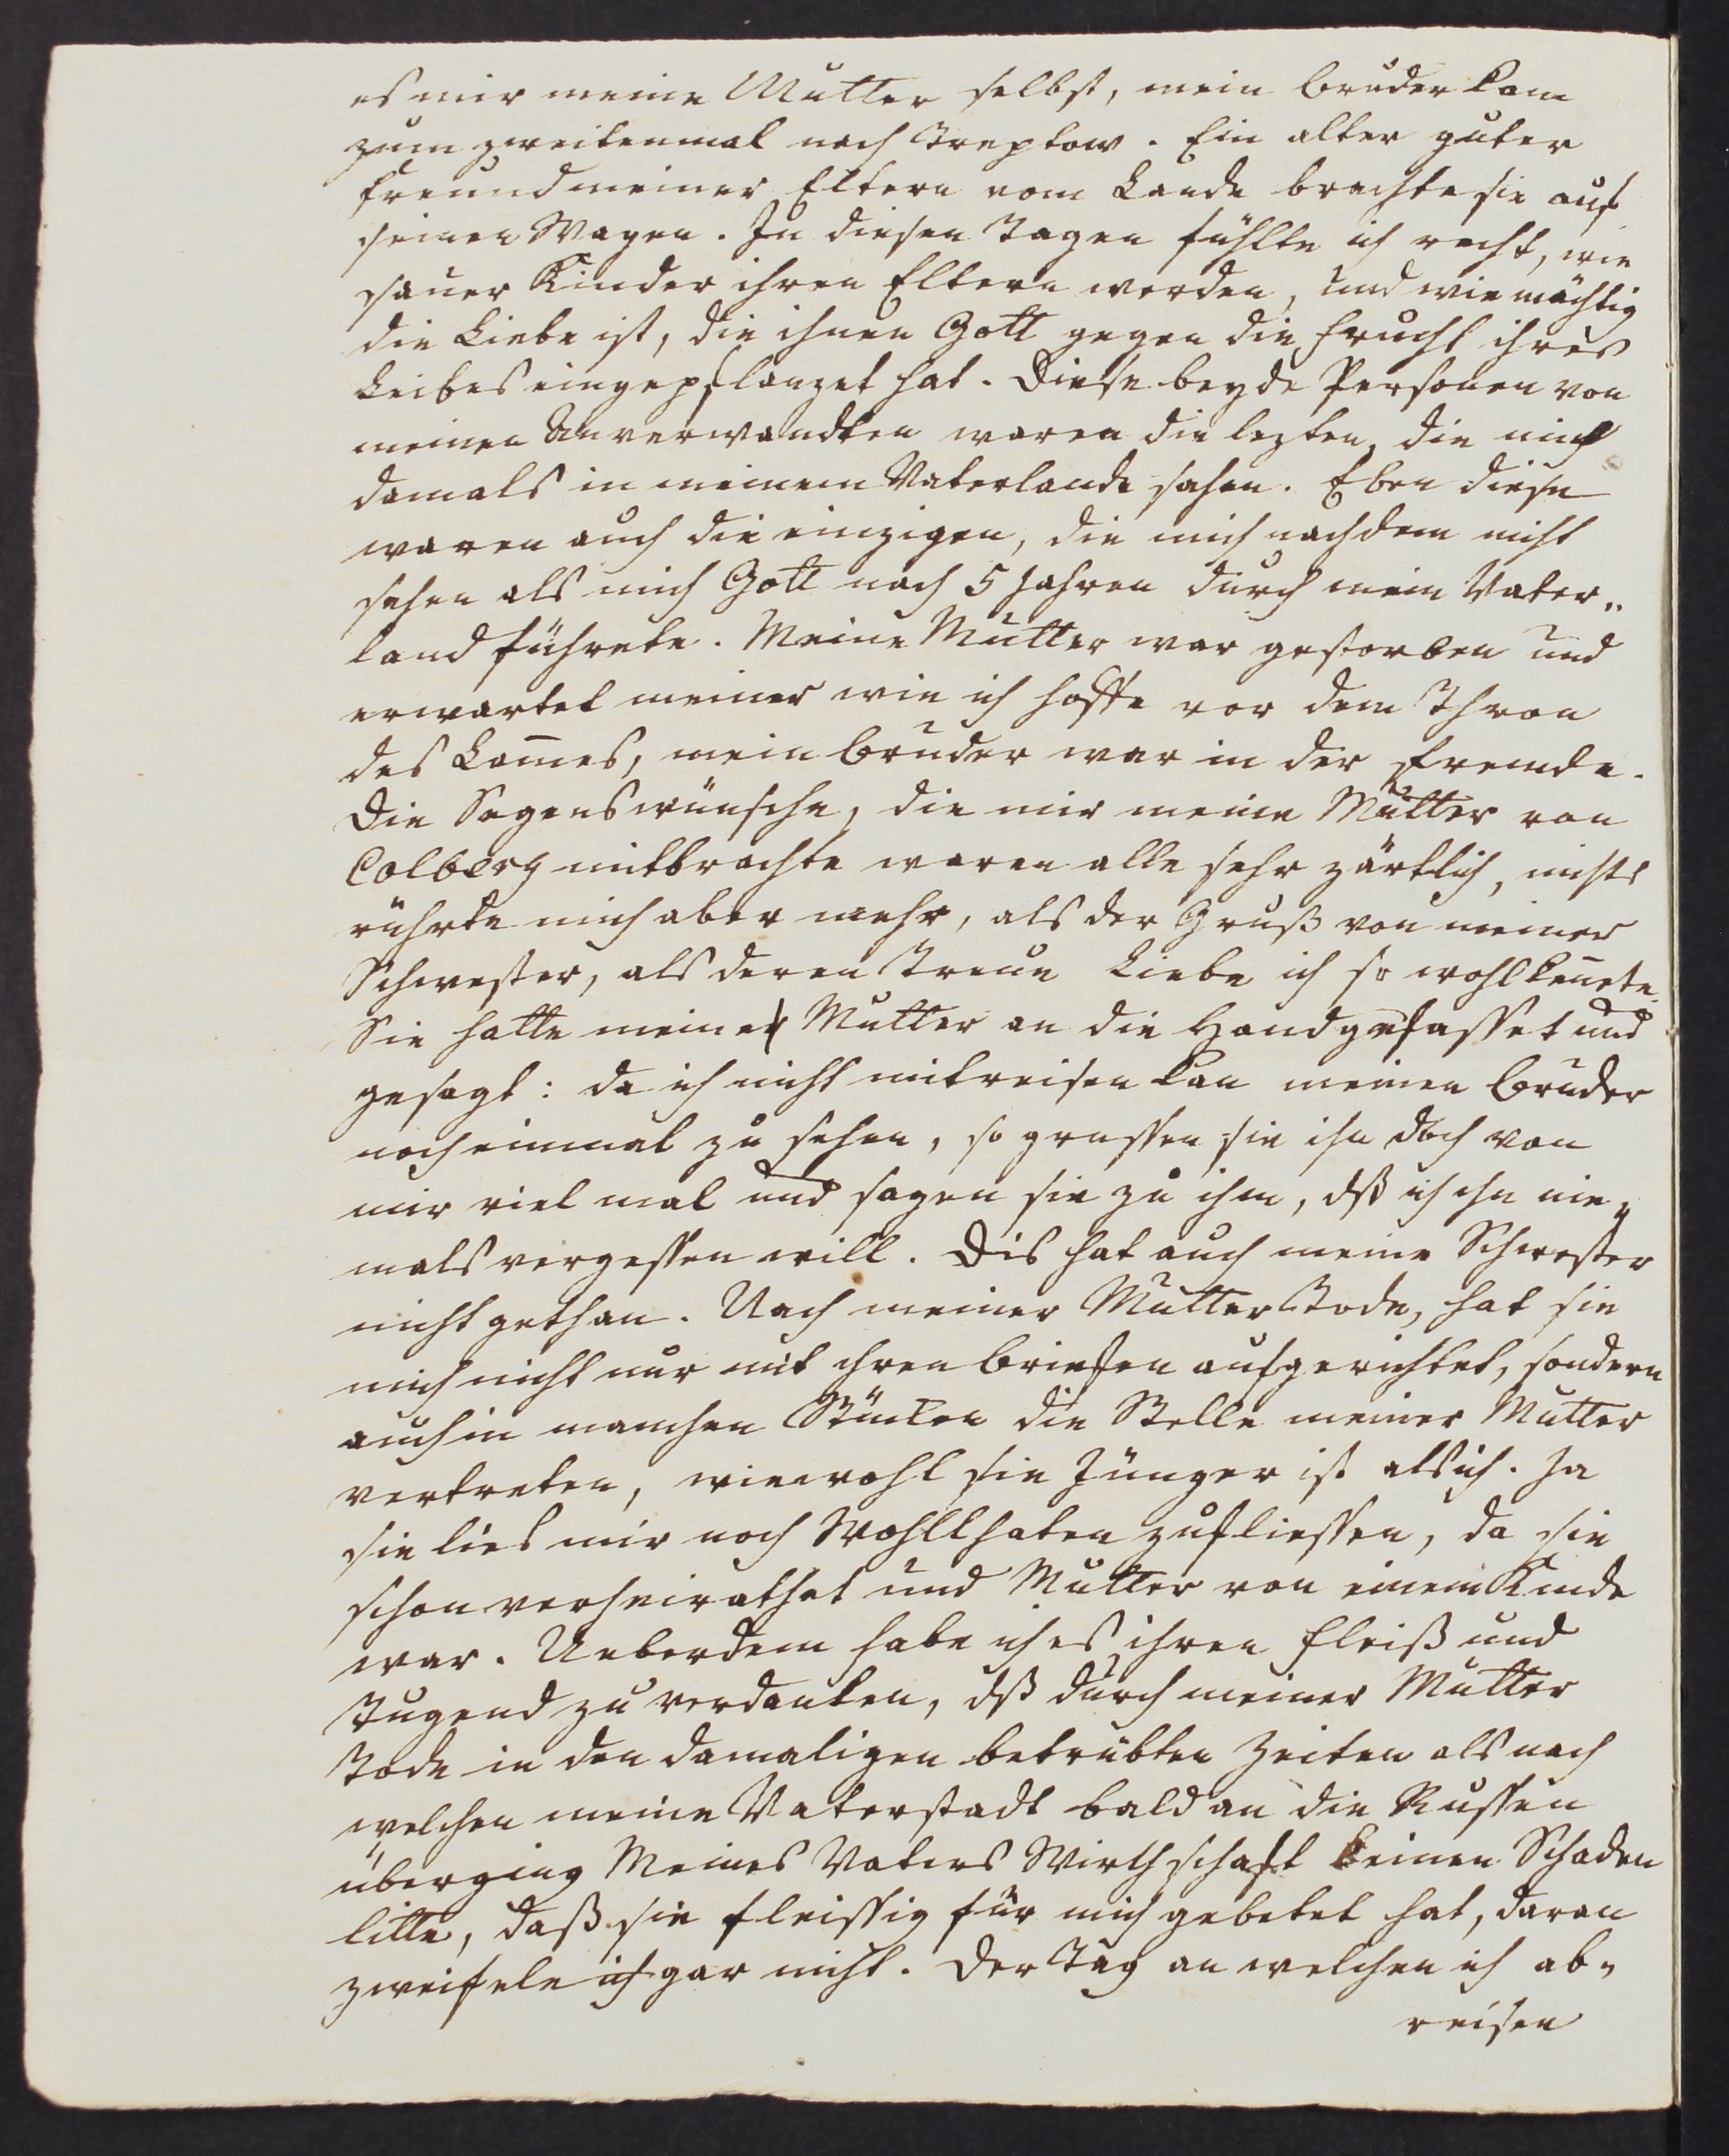 es mir meine Mutter selbst, mein Bruder kam
zum zweitenmal nach Treptow. Ein alter guter
Freund meiner Eltern vom Lande brachte sie auf
seinen Wagen. In diesen Tagen fühlte ich recht, wie
sauer Kinder ihren Eltern werden, und wie mächtig
die Liebe ist, die ihnen Gott gegen die Frucht ihres
Leibes eingepflanzet hat. Diese beyde Personen von
meinen Anverwandten waren die lezten, die mich
damals in meinem Vaterlande sahen. Eben diese
waren auch die einzigen, die mich nachdem nicht
sahen als mich Gott nach 5 Jahren durch mein Vater„
land führete. Meine Mutter war gestorben und
erwartet meiner wie ich hoffe vor dem Thron
des Lam̅es, mein Bruder war in der Fremde.
Die Segenswünsche, die mir meine Mutter von
Colberg mitbrachte waren alle sehr zärtlich, nichts
rührte mich aber mehr, als der Gruß von meiner
Schwester, als deren Treue Liebe ich so wohl ken̅ete.
Sie hatte meine Mutter an die Hand gefasset und
gesagt: da ich nicht mitreisen kan meinen Bruder
noch einmal zu sehen, so grussen sie ihn doch von
mir viel mal und sagen sie zu ihm, dß ich ihn nie„
mals vergessen will. Dis hat auch meine Schwester
nicht gethan. Nach meiner Mutter Tode, hat sie
mich nicht nur mit ihren Briefen aufgerichtet, sondern
auch in manchen Stücken die Stelle meiner Mutter
vertreten, wiewohl sie Jünger ist als ich. Ja
sie lies mir noch Wohlthaten zufliessen, da sie
schon verheirathet und Mutter von einem Kinde
war. Ueberdem habe ich es ihren Fleiß und
Tugend zu verdanken, dß durch meiner Mutter
Tode in den damaligen betrübten Zeiten als nach
welchen meine Vaterstadt bald an die Russen
überging Meines Vaters Wirthschaft keinen Schaden
litte, daß sie fleissig für mich gebetet hat, daran
zweifele ich gar nicht. Der Tag an welchen ich ab„
reisen